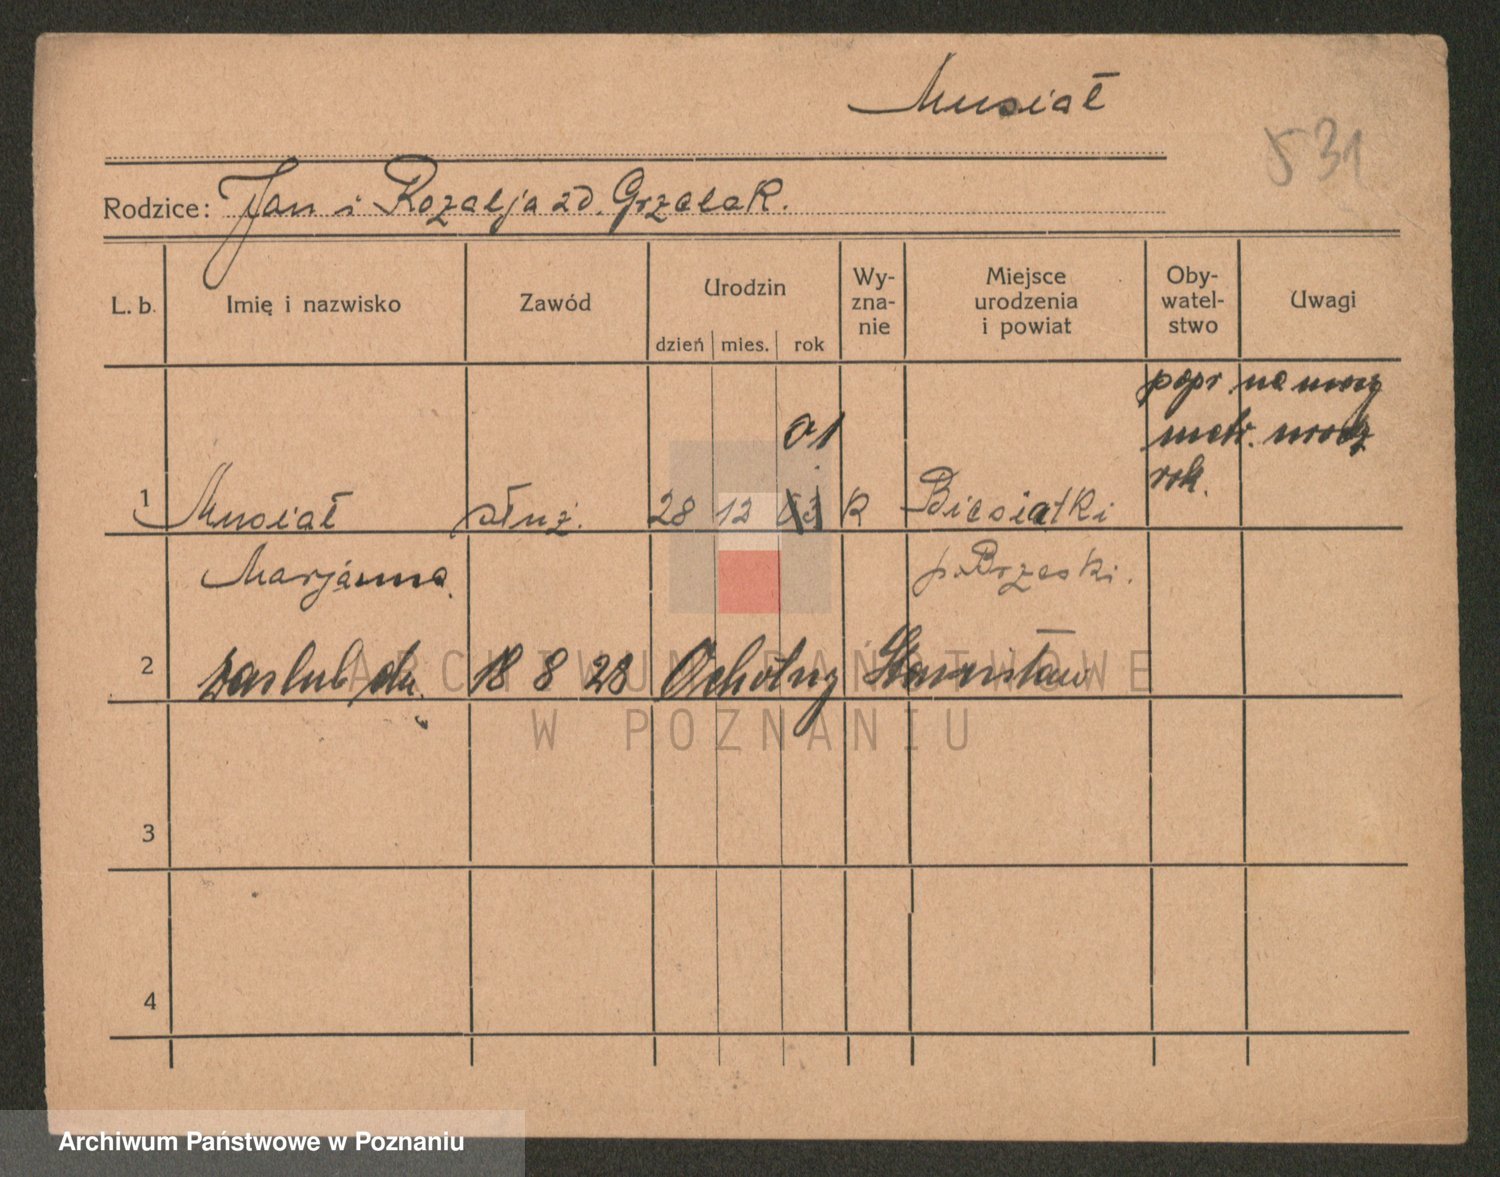 Musiał
531
Rodzice: Jan i Rozalja zd. Grzelak.
L. b. Imię i nazwisko Zawód Urodzin dzień mies. rok Wy-zna-nie Miejsce urodzenia i powiat Oby-watel-stwo Uwagi
popr na mocy
01 metr. urodz
rok.
1 Musiał służ. 28 12 03 k Biesiatki
Marjanna p. Brzeski.
2 zaslub dn. 18 8 28 Ochotny Stanisław
3
4
ARCHIWUM PAŃSTWOWE
W POZNANIU
Archiwum Państwowe w Poznaniu